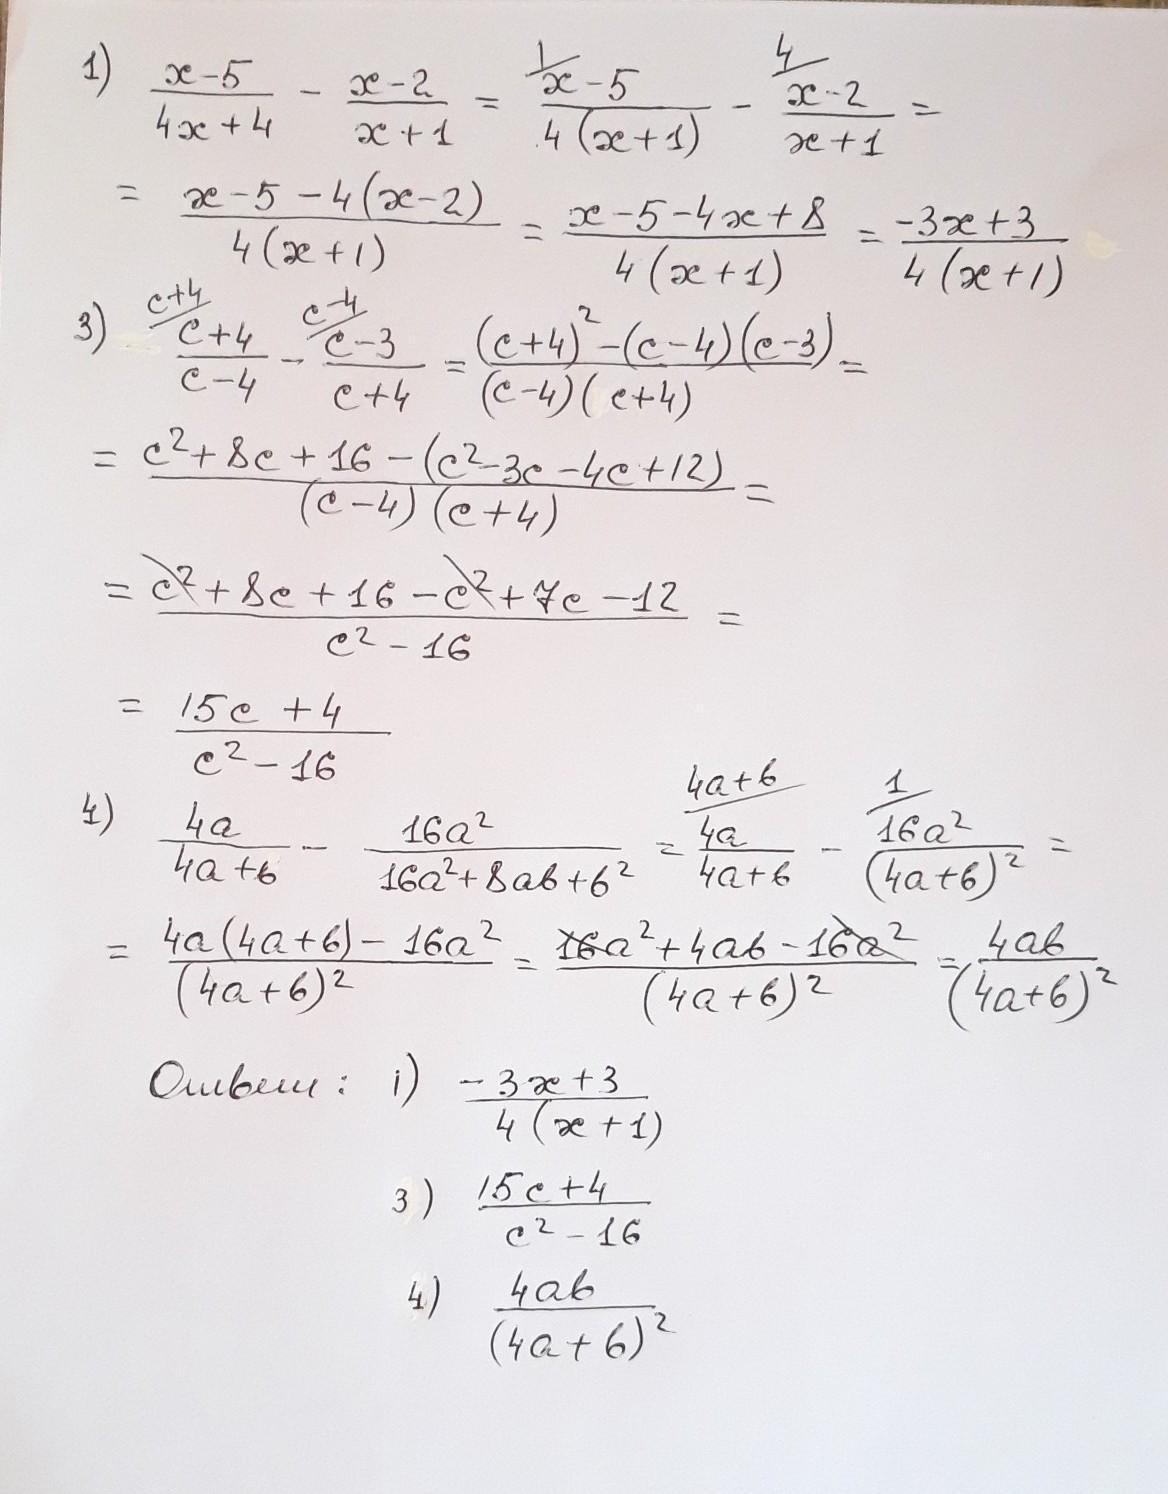 1) (x-5)/(4x+4) - (x-2)/(x+1) = (x-5)/(4(x+1)) ^1/ - (x-2)/(x+1) ^4/ =
= (x-5-4(x-2))/(4(x+1)) = (x-5-4x+8)/(4(x+1)) = (-3x+3)/(4(x+1))
3) (c+4)/(c-4) ^c+4/ - (c-3)/(c+4) ^c-4/ = ((c+4)²-(c-4)(c-3))/((c-4)(c+4)) =
= (c²+8c+16-(c²-3c-4c+12))/((c-4)(c+4)) =
= (c²+8c+16-c²+7c-12)/(c²-16) =
= (15c+4)/(c²-16)
4) 4a/(4a+b) - 16a²/(16a²+8ab+b²) = 4a/(4a+b) ^4a+b/ - 16a²/(4a+b)² ^1/ =
= (4a(4a+b)-16a²)/(4a+b)² = (16a²+4ab-16a²)/(4a+b)² = 4ab/(4a+b)²
Ответ: 1) (-3x+3)/(4(x+1))
3) (15c+4)/(c²-16)
4) 4ab/(4a+b)²